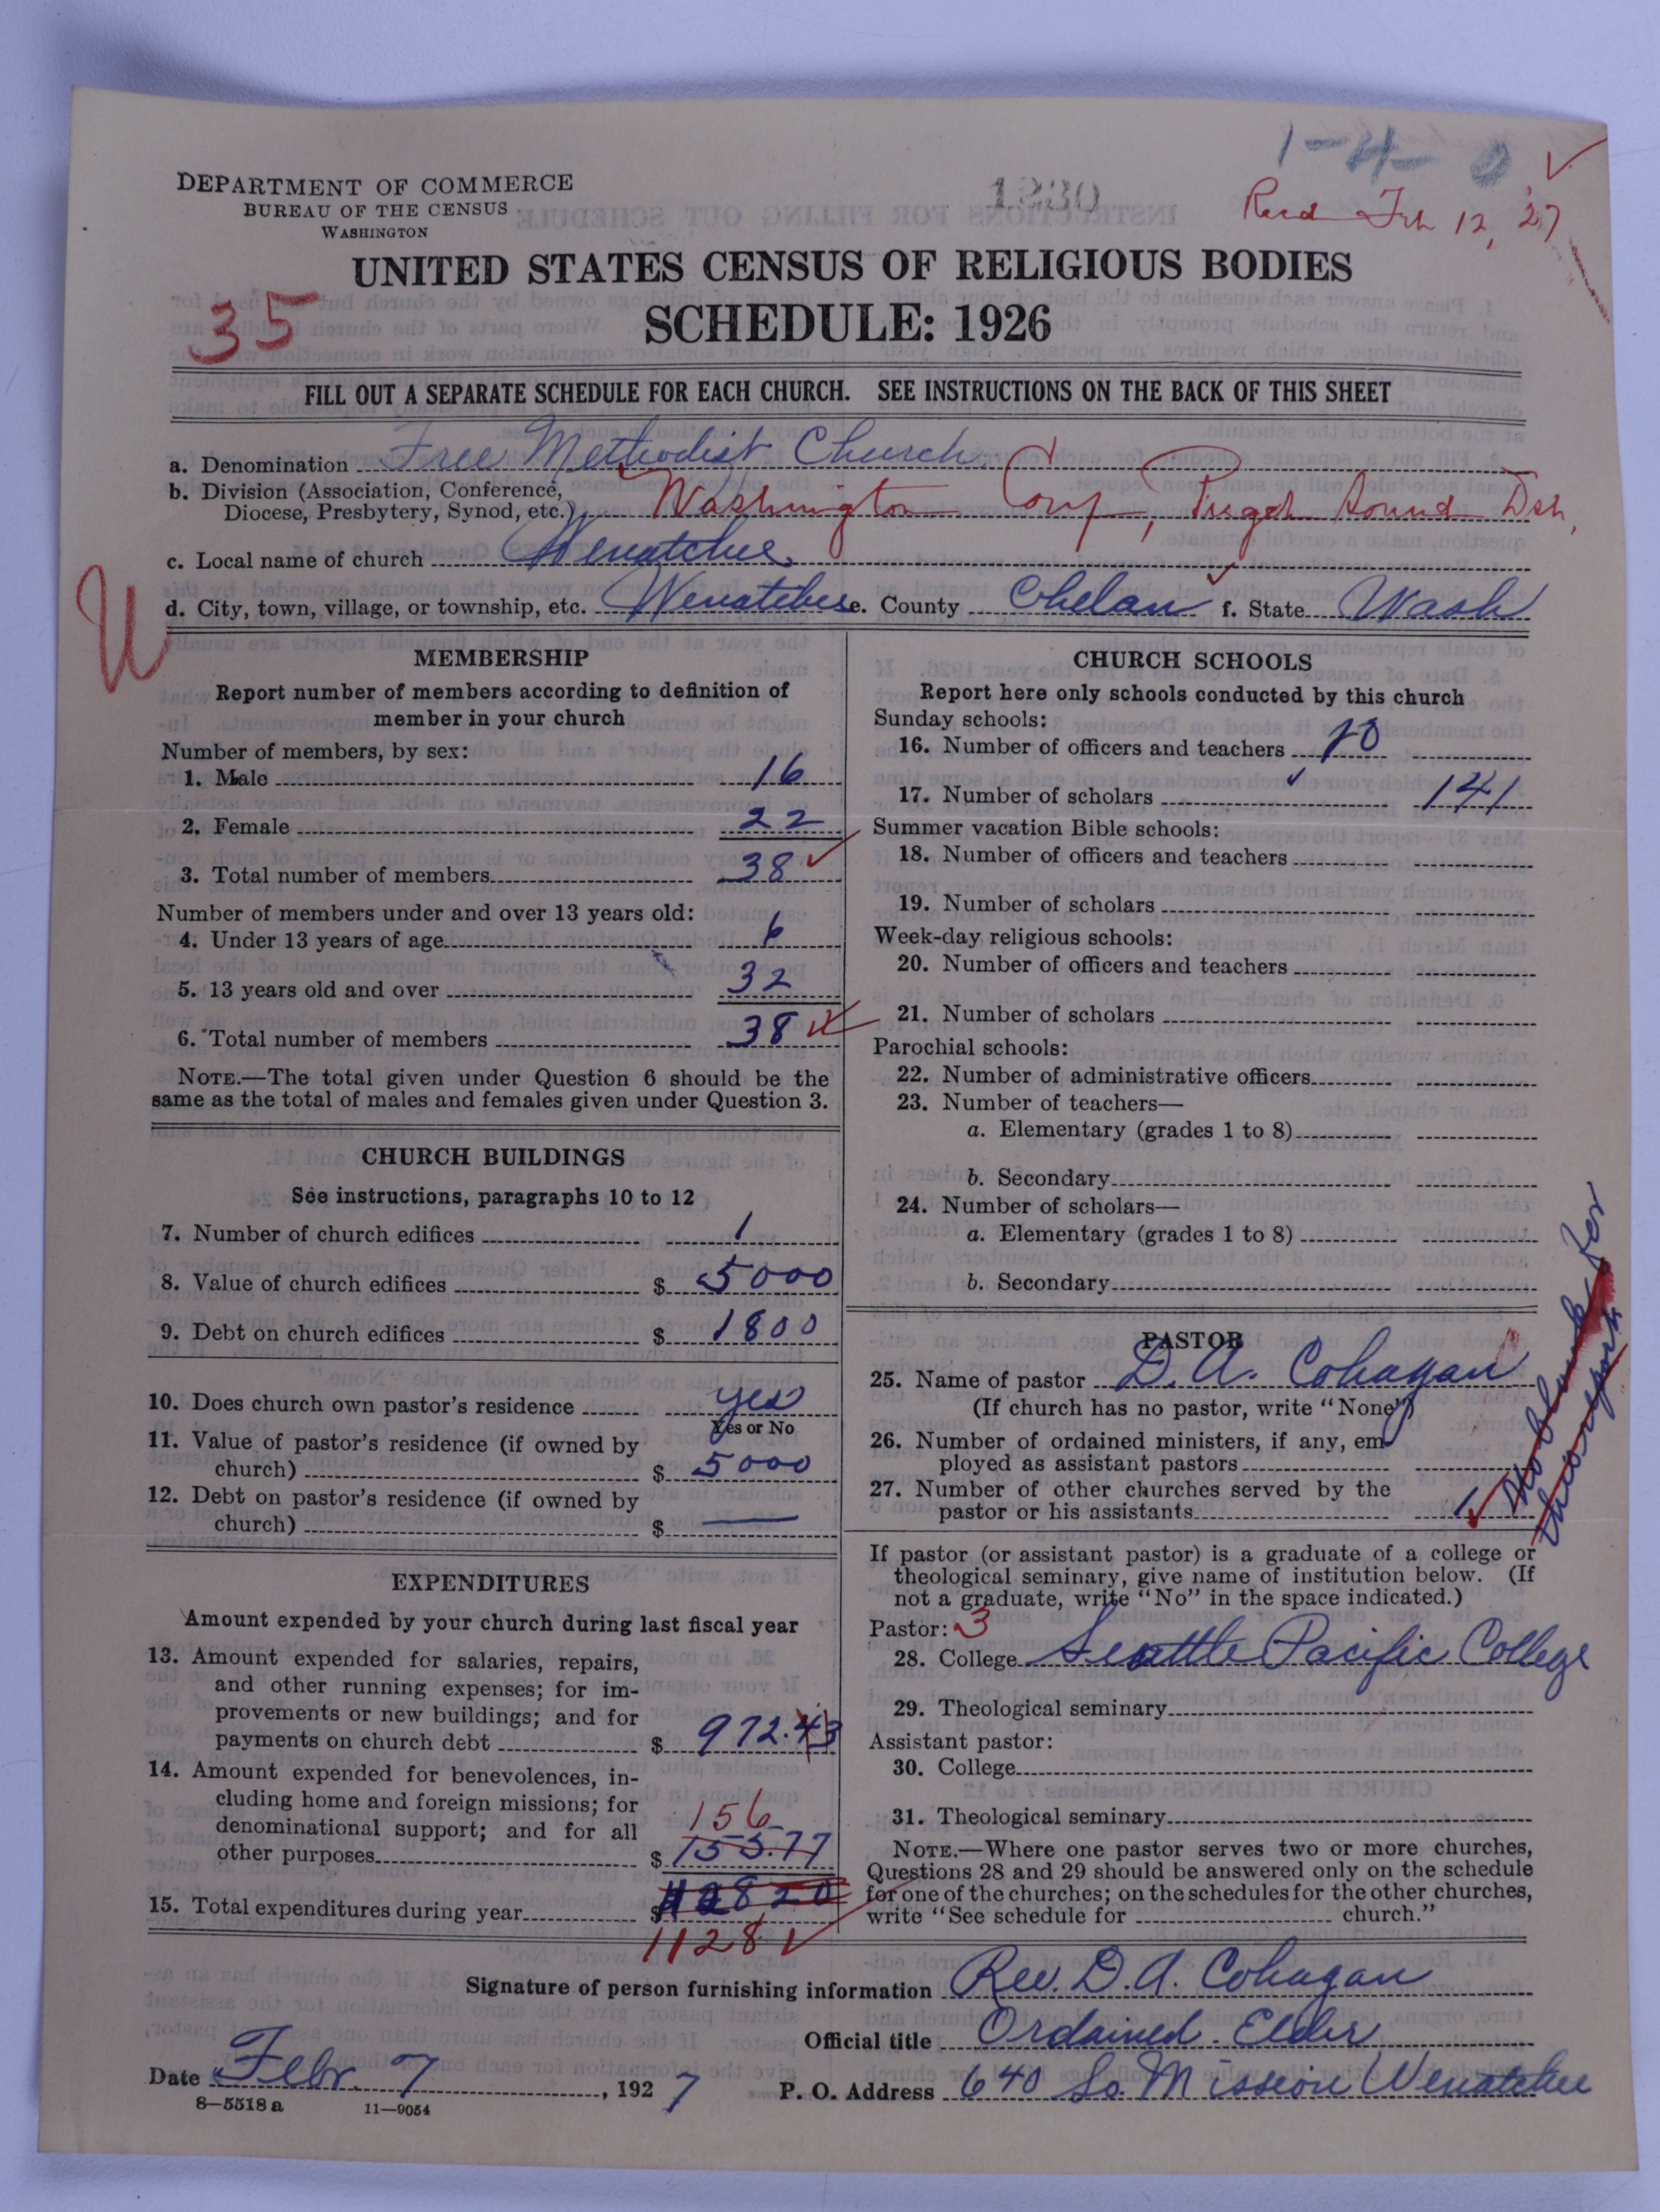 1-4-0
DEPARTMENT OF COMMERCE
BUREAU OF THE CENSUS
WASHINGTON
1230
Recd Feb 12, 27
UNITED STATES CENSUS OF RELIGIOUS BODIES
SCHEDULE: 1926
35
FILL OUT A SEPARATE SCHEDULE FOR EACH CHURCH. SEE INSTRUCTIONS ON THE BACK OF THIS SHEET
a. Denomination Free Methodist Church
b. Division (Association, Conference,
Diocese, Presbytery, Synod, etc.) Washington Conf, Puget Sound Dch,
c. Local name of church Wenatchee
d. City, town, village, or township, etc. Wenatchee e. County Chelan f. State Wash
U
MEMBERSHIP
Report number of members according to definition of
member in your church
Number of members, by sex:
1. Male 16
2. Female 22
3. Total number of members 38
Number of members under and over 13 years old:
4. Under 13 years of age 6
5. 13 years old and over 32
6. Total number of members 38
NOTE.—The total given under Question 6 should be the
same as the total of males and females given under Question 3.
CHURCH BUILDINGS
See instructions, paragraphs 10 to 12
7. Number of church edifices 1
8. Value of church edifices $ 5000
9. Debt on church edifices $ 1800
10. Does church own pastor's residence yes
Yes or No
11. Value of pastor's residence (if owned by
church) $ 5000
12. Debt on pastor's residence (if owned by
church) $ —
EXPENDITURES
Amount expended by your church during last fiscal year
13. Amount expended for salaries, repairs,
and other running expenses; for im-
provements or new buildings; and for
payments on church debt $ 972.43
14. Amount expended for benevolences, in-
cluding home and foreign missions; for
denominational support; and for all
other purposes $ 155.77
156
15. Total expenditures during year $
1128
CHURCH SCHOOLS
Report here only schools conducted by this church
Sunday schools:
16. Number of officers and teachers 10
17. Number of scholars 141
Summer vacation Bible schools:
18. Number of officers and teachers
19. Number of scholars
Week-day religious schools:
20. Number of officers and teachers
21. Number of scholars
Parochial schools:
22. Number of administrative officers
23. Number of teachers—
a. Elementary (grades 1 to 8)
b. Secondary
24. Number of scholars—
a. Elementary (grades 1 to 8)
b. Secondary
PASTOR
25. Name of pastor D. A. Cohagan
(If church has no pastor, write "None")
26. Number of ordained ministers, if any, em-
ployed as assistant pastors
27. Number of other churches served by the
pastor or his assistants 1
No blank for
this report
If pastor (or assistant pastor) is a graduate of a college or
theological seminary, give name of institution below. (If
not a graduate, write "No" in the space indicated.)
Pastor: 3
28. College Seattle Pacific College
29. Theological seminary
Assistant pastor:
30. College
31. Theological seminary
NOTE.—Where one pastor serves two or more churches,
Questions 28 and 29 should be answered only on the schedule
for one of the churches; on the schedules for the other churches,
write "See schedule for church."
Signature of person furnishing information Rev. D. A. Cohagan
Official title Ordained Elder
Date Febr. 7, 1927 P. O. Address 640 So. Mission Wenatchee
8—5518 a 11—9054